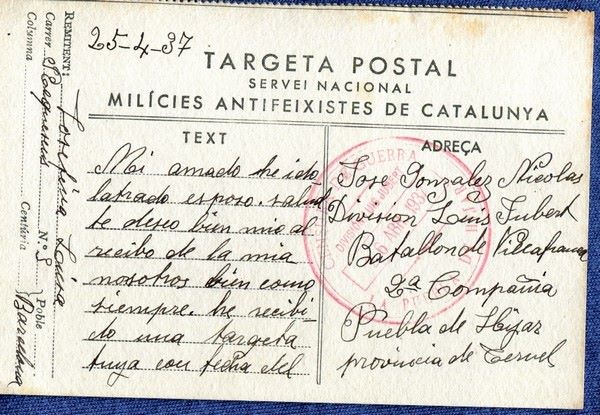 25-4-37
TARGETA POSTAL
SERVEI NACIONAL
MILÍCIES ANTIFEIXISTES DE CATALUNYA
REMITENT: Josefina
Carrer Requesens N.º 8 Poble Barcelona
Columna Centúria
TEXT
Mi amado he ido
latrado esposo. salud
te deseo bien mio al
recibo de la mia
nosotros bien como
siempre. he recibi
do una targeta
tuya con fecha del
ADREÇA
Jose Gonzalez Nicolas
Division Luis Jubert
Batallon de Vilafranca
2ª Compañia
Puebla de Hijar
provincia de Teruel
GUERRA
LA PUEBLA